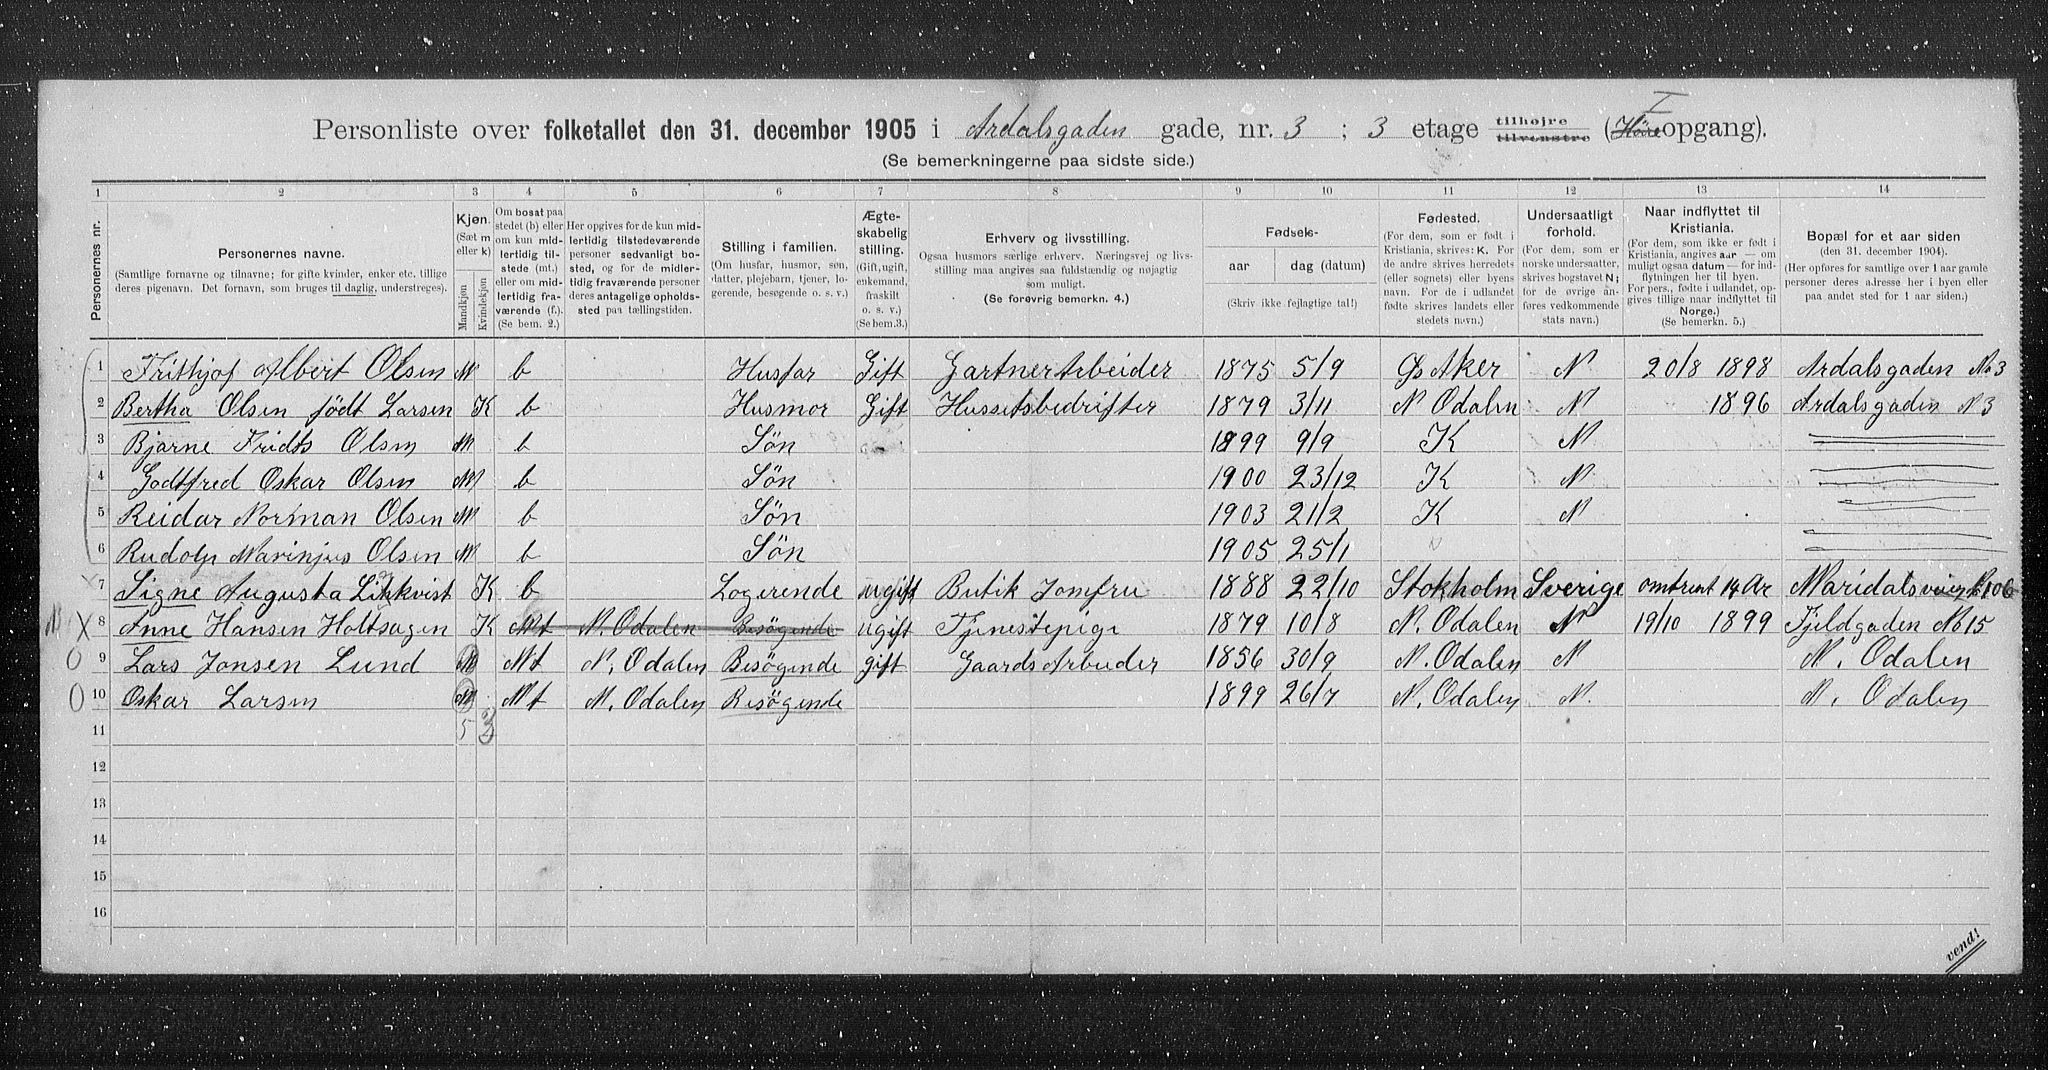 Personliste over folketallet den 31. december 1905 i Ardalsgaden gade, nr. 3 ; 3 etage tilhøjre tilvenstre (Høire I opgang).
(Se bemerkningerne paa sidste side.)
1 2 3 4 5 6 7 8 9 10 11 12 13 14
Personernes nr.
Personernes navne.
(Samtlige fornavne og tilnavne; for gifte kvinder, enker etc. tillige
deres pigenavn. Det fornavn, som bruges til daglig, understreges).
Kjøn.
(Sæt m
eller k)
Mandkjøn
Kvindekjøn
Om bosat paa
stedet (b) eller
om kun midlertidig
tilstede (mt.)
eller om midlertidig
fraværende (f.).
(Se bem. 2.)
Her opgives for de kun midlertidig
tilstedeværende
personer sedvanlig bosted,
og for de midlertidig
fraværende personer
deres antagelige opholdssted
paa tællingstiden.
Stilling i familien.
(Om husfar, husmor, søn,
datter, plejebarn, tjener, logerende,
besøgende o. s. v.)
Ægteskabelig
stilling.
(Gift, ugift,
enkemand,
fraskilt
o. s. v.)
(Se bem.3.)
Erhverv og livsstilling.
Ogsaa husmors særlige erhverv. Næringsvej og livsstilling
maa angives saa fuldstændig og nøjagtig
som muligt.
(Se forøvrig bemerkn. 4.)
Fødsels-
aar dag (datum)
(Skriv ikke fejlagtige tal!)
Fødested.
(For dem, som er født i
Kristiania, skrives: K. For
de andre skrives herredets
(eller sognets) eller byens
navn. For de i udlandet
fødte skrives landets eller
stedets navn.)
Undersaatligt
forhold.
(For dem, som er
norske undersaatter,
skrives bogstavet N;
for de øvrige anføres
vedkommende
stats navn.)
Naar indflyttet til
Kristiania.
(For dem, som ikke er født i
Kristiania, angives aar — om
muligt ogsaa datum — for indflytningen
her til byen.
For pers., fødte i udlandet, opgives
tillige naar indflyttet til
Norge.)
(Se bemerkn. 5.)
Bopæl for et aar siden
(den 31. december 1904).
(Her opføres for samtlige over 1 aar gamle
personer deres adresse her i byen eller
paa andet sted for 1 aar siden.)
1 Frithjof Albert Olsen M b Husfar Gift Gartner Arbeider 1875 5/9 Aker N 20/8 1898 Ardalsgaden No 3
2 Bertha Olsen født Larsen K b Husmor Gift Hussetsbedrifter 1879 3/11 N Odalen N 1896 Ardalsgaden N 3
3 Bjarne Fridts Olsen M b Søn 1899 9/9 K N
4 Godtfred Oskar Olsen M b Søn 1900 23/12 K N
5 Reidar Norman Olsen M b Søn 1903 21/2 K N
6 Rudolp Marinjus Olsen M b Søn 1905 25/1
7 Signe Augusta Linkvist K b Logerende ugift Butik Jomfru 1888 22/10 Stokholm Sverige omtrent 14 Ar Maridalsveien 106
X 8 Anne Hansen Holtsagen K Mt N. Odalen Besøgende ugift Tjenestepige 1879 10/8 N. Odalen N 19/10 1899 Fjeldgaden No 15
0 9 Lars Jonsen Lund M Mt N. Odalen Besøgende gift Gaards Arbeider 1856 30/9 N. Odalen N N. Odalen
0 10 Oskar Larsen M Mt N. Odalen Besøgende 1899 26/7 N. Odalen N. N. Odalen
11 5 3
12
13
14
15
16
vend!